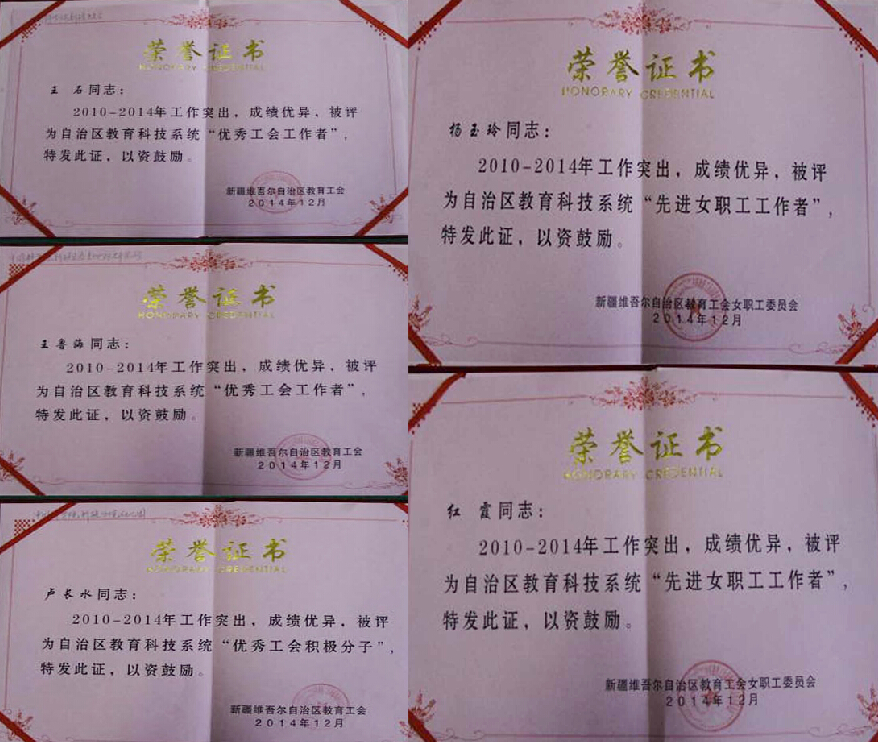 荣誉证书
HONORARY CREDENTIAL
王 石同志：
2010-2014年工作突出，成绩优异，被评
为自治区教育科技系统“优秀工会工作者”，
特发此证，以资鼓励。
新疆维吾尔自治区教育工会
2014年12月
荣誉证书
HONORARY CREDENTIAL
王普海同志：
2010-2014年工作突出，成绩优异，被评
为自治区教育科技系统“优秀工会工作者”，
特发此证，以资鼓励。
新疆维吾尔自治区教育工会
2014年12月
荣誉证书
HONORARY CREDENTIAL
卢长水同志：
2010-2014年工作突出，成绩优异，被评
为自治区教育科技系统“优秀工会积极分子”，
特发此证，以资鼓励。
新疆维吾尔自治区教育工会
2014年12月
荣誉证书
HONORARY CREDENTIAL
杨玉玲同志：
2010-2014年工作突出，成绩优异，被评
为自治区教育科技系统“先进女职工工作者”，
特发此证，以资鼓励。
新疆维吾尔自治区教育工会女职工委员会
2014年12月
荣誉证书
HONORARY CREDENTIAL
红 霞同志：
2010-2014年工作突出，成绩优异，被评
为自治区教育科技系统“先进女职工工作者”，
特发此证，以资鼓励。
新疆维吾尔自治区教育工会女职工委员会
2014年12月